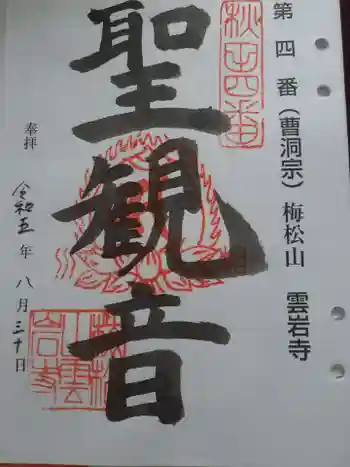 第四番(曹洞宗)梅松山 雲岩寺
秋田四番
聖観音
奉拝
令和五年八月三十日